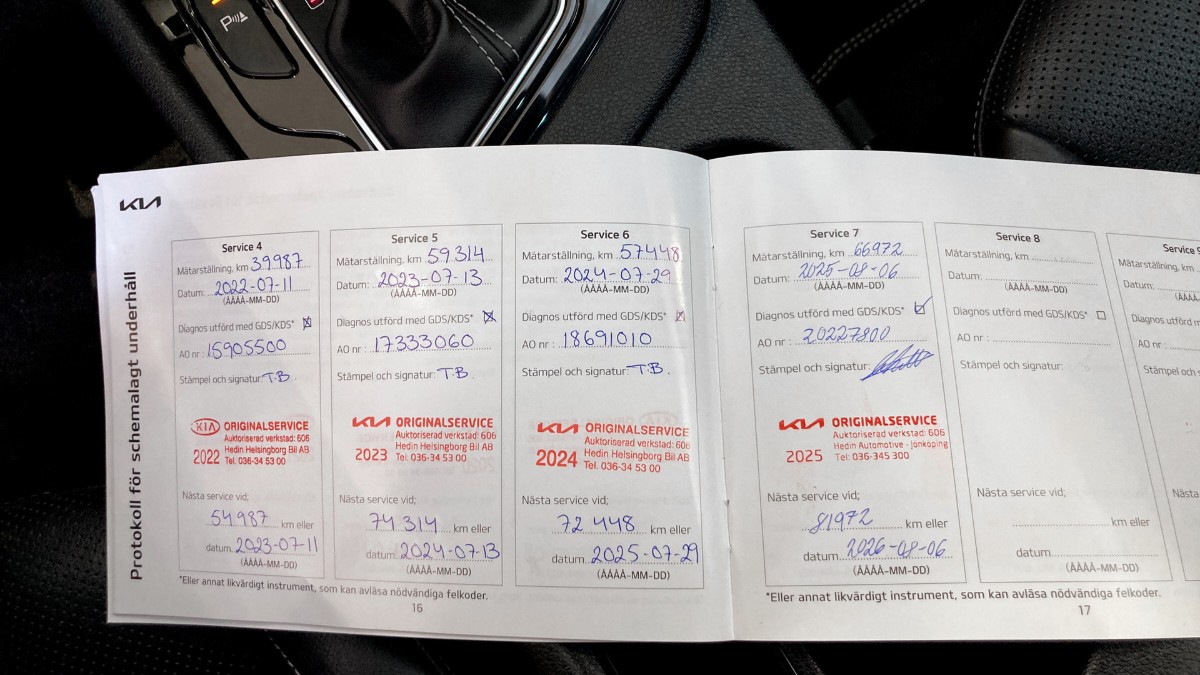 P
KIA
Protokoll för schemalagt underhåll
Service 4
Mätarställning, km 39987
Datum: 2022-07-11
(ÅÅÅÅ-MM-DD)
Diagnos utförd med GDS/KDS*
AO nr : 15905500
Stämpel och signatur: T.B
KIA ORIGINALSERVICE
Auktoriserad verkstad: 606
Hedin Helsingborg Bil AB
2022 Tel: 036-34 53 00
Nästa service vid;
54987 km eller
datum. 2023-07-11
(ÅÅÅÅ-MM-DD)
Service 5
Mätarställning, km 59314
Datum: 2023-07-13
(ÅÅÅÅ-MM-DD)
Diagnos utförd med GDS/KDS*
AO nr : 17333060
Stämpel och signatur: T.B
KIA ORIGINALSERVICE
Auktoriserad verkstad: 606
Hedin Helsingborg Bil AB
2023 Tel: 036-34 53 00
Nästa service vid;
74314 km eller
datum. 2024-07-13
(ÅÅÅÅ-MM-DD)
Service 6
Mätarställning, km 57448
Datum: 2024-07-29
(ÅÅÅÅ-MM-DD)
Diagnos utförd med GDS/KDS*
AO nr : 18691010
Stämpel och signatur: T.B.
KIA ORIGINALSERVICE
Auktoriserad verkstad: 606
Hedin Helsingborg Bil AB
2024 Tel: 036-34 53 00
Nästa service vid;
72448 km eller
datum. 2025-07-29
(ÅÅÅÅ-MM-DD)
*Eller annat likvärdigt instrument, som kan avläsa nödvändiga felkoder.
16
Service 7
Mätarställning, km 66972
Datum: 2025-08-06
(ÅÅÅÅ-MM-DD)
Diagnos utförd med GDS/KDS*
AO nr : 20227800
Stämpel och signatur:
KIA ORIGINALSERVICE
Auktoriserad verkstad: 606
Hedin Automotive - Jönköping
2025 Tel: 036-345 300
Nästa service vid;
81972 km eller
datum. 2026-08-06
(ÅÅÅÅ-MM-DD)
Service 8
Mätarställning, km
Datum:
(ÅÅÅÅ-MM-DD)
Diagnos utförd med GDS/KDS*
AO nr :
Stämpel och signatur:
Nästa service vid;
km eller
datum.
(ÅÅÅÅ-MM-DD)
Service 9
Mätarställning,
Datum:
(ÅÅÅÅ
Diagnos utförd m
AO nr :
Stämpel och s
Nästa
*Eller annat likvärdigt instrument, som kan avläsa nödvändiga felkoder.
17